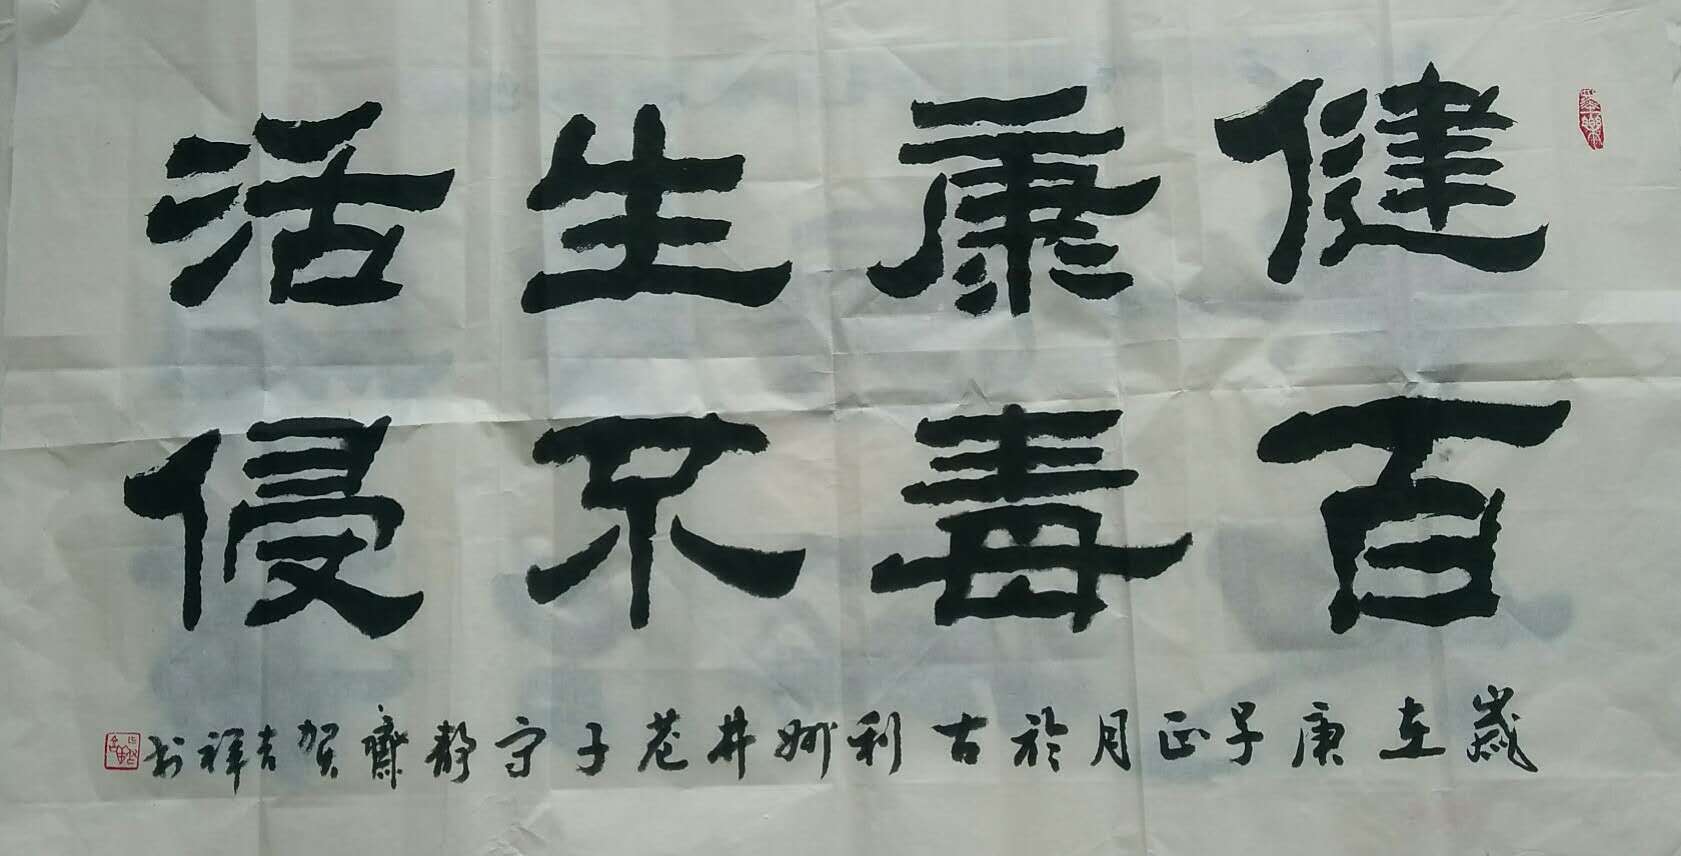 健康生活
百毒不侵
歲在庚子正月於古利州井花子守静齋賀吉祥书